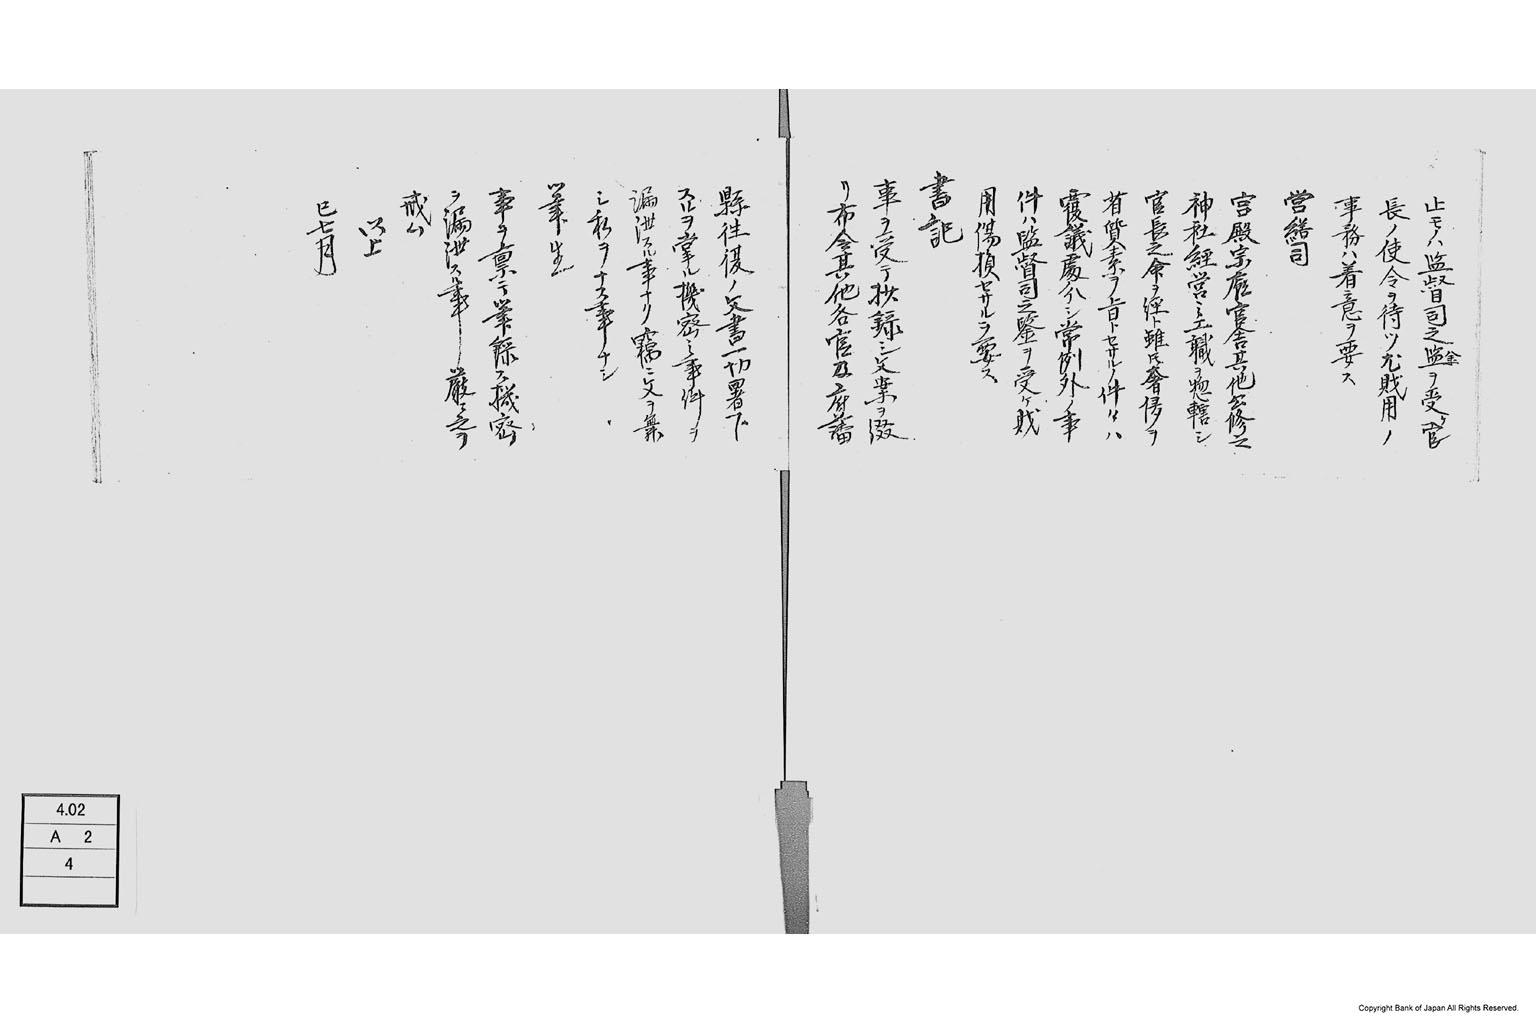 止モノハ監督司之監ヲ受ケ官
長ノ使令ヲ待ツ尤貨用ノ
事務ハ着意ヲ要ス
営繕司
宮殿宗廟官舎其他公修之
神社経営之工職ヲ惣轄シ
官長之命ヲ経ト雖氏奢侈ヲ
省質素ヲ旨トセサルノ件々ハ
覆議處分シ常例外ノ事
件ハ監督司之鑒ヲ受ケ貨
用傷損セサルヲ要ス
書記
事ヲ受テ抄録シ文案ヲ綴
リ布令其他各官及府藩
縣往復ノ文書一切署下
スルヲ掌ル機密之事件ヲ
漏泄スル事ナク 竊ニ文ヲ舞
シ私ヲナス事ナシ
筆生
事ヲ稟テ筆録ス機密
ヲ漏泄スル事 厳ニ之ヲ
戒ム
以上
巳七月
4.02
A 2
4
Copyright Bank of Japan All Rights Reserved.